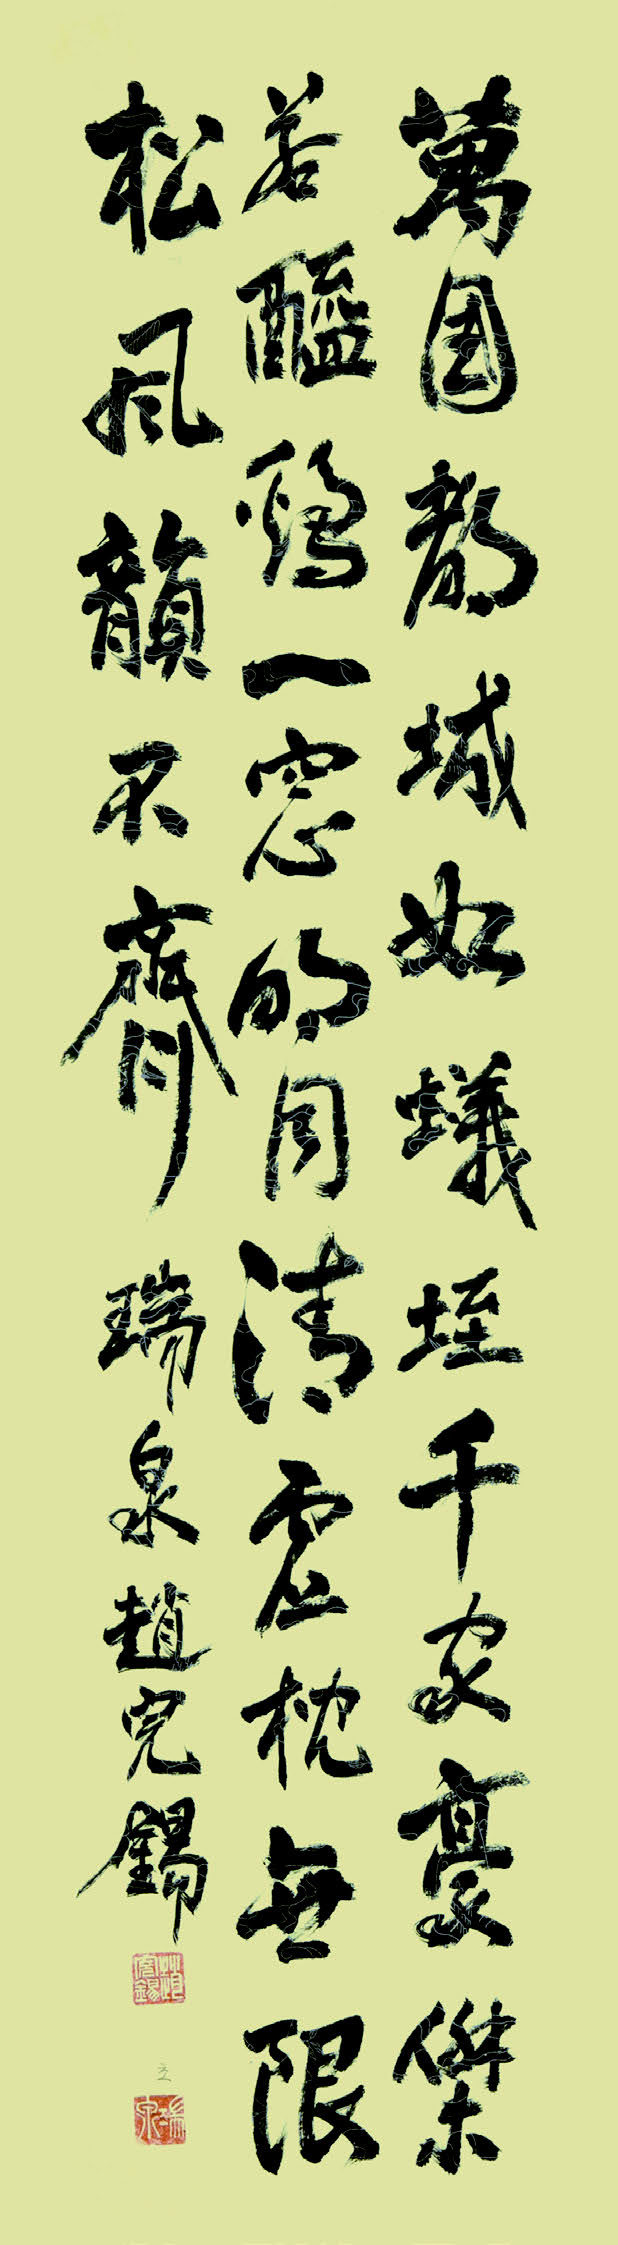 萬國都城如蟻垤千家豪傑
若醯鷄一窓明月清虛枕無限
松風韻不齊 瑞泉趙完錫